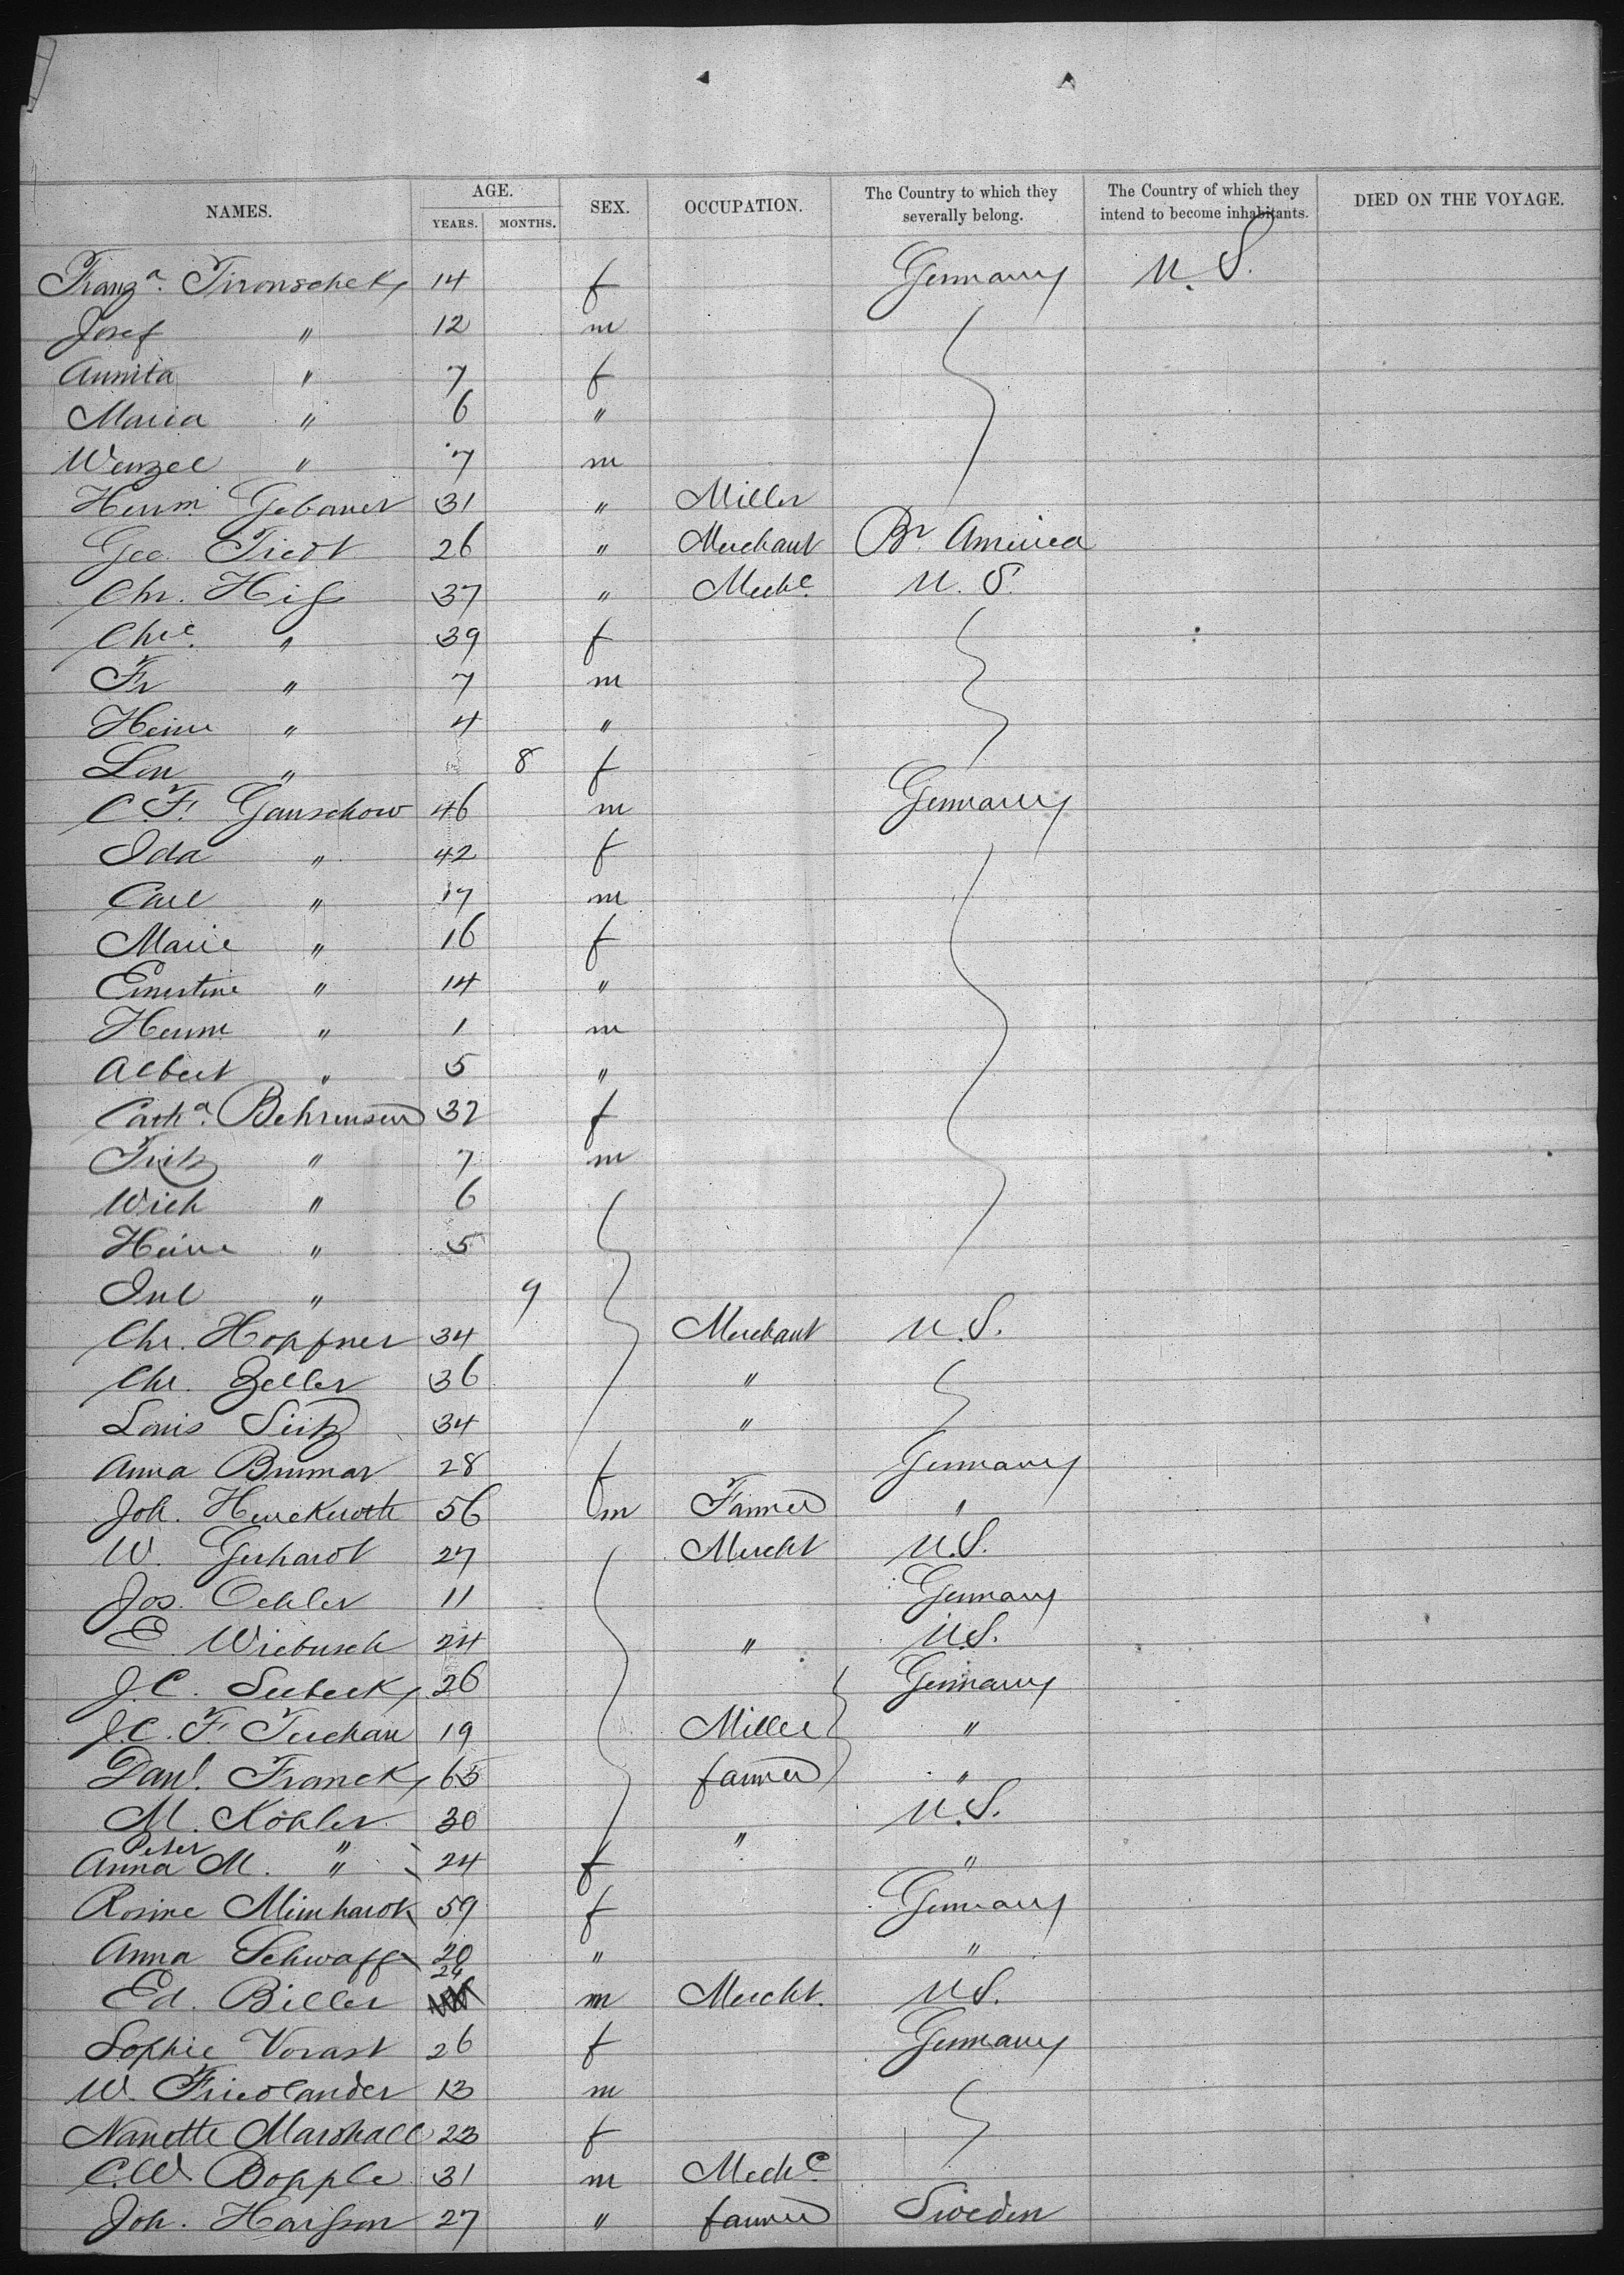 NAMES. AGE. SEX. OCCUPATION. The Country to which they severally belong. The Country of which they intend to become inhabitants. DIED ON THE VOYAGE.
YEARS. MONTHS.
Franz.a Tironschek 14 f Germany U. S.
Josef " 12 m
Annita " 7 f
Maria " 6 "
Wenzel " 7 m
Herm. Gebauer 31 " Miller
Geo. Tiedt 26 " Merchant Br. America
Chr. 37 " Mechc. U. S.
Chre. " 39 f
Fr " 7 m
Heinr " 4 "
Lou " 8 f
C. F. Ganschow 46 m Germany
Ida " 42 f
Carl " 17 m
Marie " 16 f
Ernestine " 14 "
Herm " 1 m
Albert " 5 "
Catha. Behrensen 32 f
Fritz " 7 m
Wieh " 6
Heinr " 5
Jul " 9
Chr. Hopfner 34 Merchant U. S.
Chr. Zeller 36 "
Louis Seitz 34 "
Anna Brumar 28 f Germany
Joh. Henckroth 56 m Farmer "
W. Gerhardt 27 Mercht U.S.
Jos. Oehler 11 Germany
E. Wiebusch 24 " U.S.
J.C. Seebeck 26 Germany
J.C. F. Tuchau 19 Miller "
Danl. Franck 65 farmer "
M. Köhler 30 " U.S.
Peter "
Anna M. " 24 f "
Rosine Meinhardt 59 f Germany
Anna Schwaff 20 " "
24
Ed. Biller m Mercht. U.S.
Sophie Vorast 26 f Germany
W. Friedlander 13 m
Nanette Marshall 23 f
C.W. Bopple 31 m Mechc.
Joh. 27 " farmer Sweden